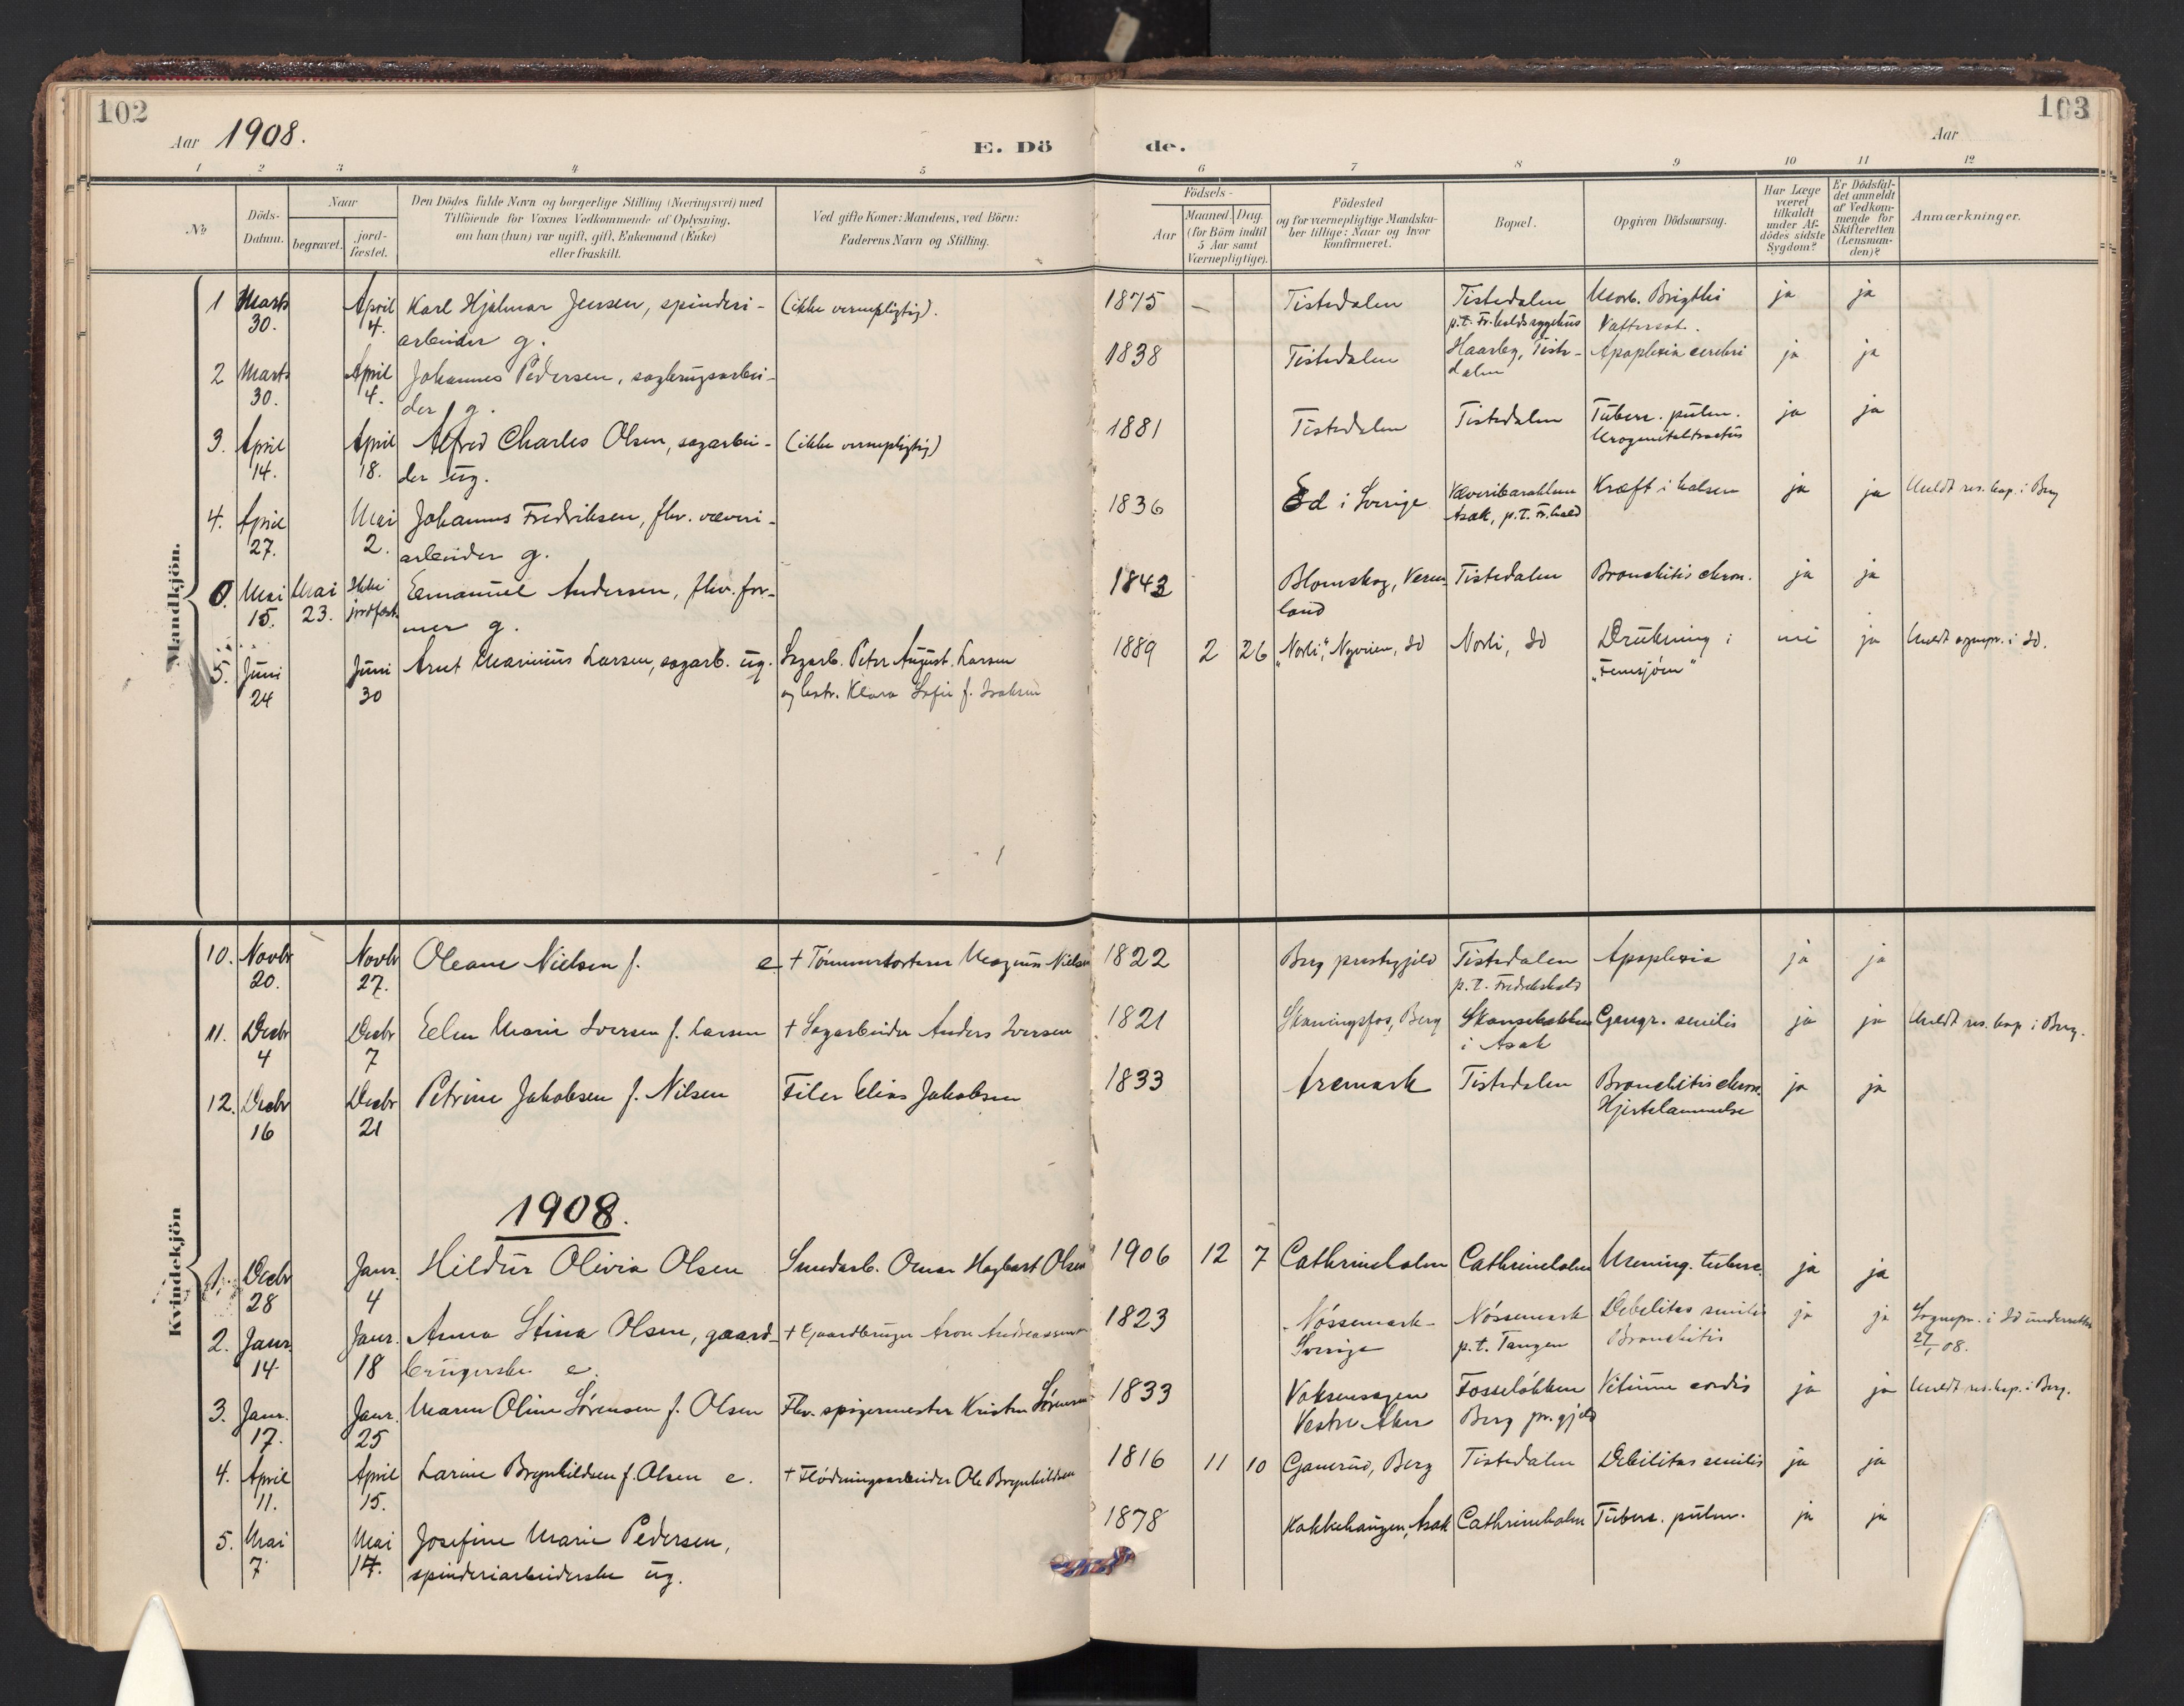 102
103
Aar 1908.
E. Dö
de.
Aar
1 2 3 4 5 6 7 8 9 10 11 12
№
Döds-
Datum.
Naar
begravet.
jord-
fæstet.
Den Dödes fulde Navn og borgerlige Stilling (Næringsvei) med
Tilföiende for Voxnes Vedkommende af Oplysning,
om han (hun) var ugift, gift, Enkemand (Enke)
eller fraskilt.
Ved gifte Koner: Mandens, ved Börn:
Faderens Navn og Stilling.
Födsels-
Aar
Maaned. Dag.
(for Börn indtil
5 Aar samt
Værnepligtige).
Födested
og for værnepligtige Mandska-
ber tillige: Naar og hvor
konfirmeret.
Bopæl.
Opgiven Dödsaarsag.
Har Læge
været
tilkaldt
under Af-
dödes sidste
Sygdom?
Er Dödsfal-
det anmeldt
af Vedkom-
mende for
Skifteretten
(Lensman-
den)?
Anmærkninger.
Mandkjön.
1 Marts April Karl Hjalmar Jensen, spinderi- (ikke vernepligtig). 1875 — Tistedalen Tistedalen Morb. Brigthi ja ja
30. 4. arbeider g. p.t. Fr.halds sygehus Vattersot.
2 Marts April Johannes Pedersen, sagbrugsarbei- 1838 Tistedalen Haarby, Tiste- Apoplexia cerebri ja ja
30. 4. der g. dalen
3. April April Alfred Charles Olsen, sagarbei- (ikke vernepligtig) 1881 Tistedalen Tistedalen Tuberc. pulm. ja ja
14. 18. der ug. Urogenitaltractus
4. April Mai Johannes Fredriksen, fhv. væveri- 1836 Ed i Sverige Væveribarakken Kræft i halsen ja ja Meldt res. kap. i Berg
27. 2. arbeider g. Asak, p.t. Fr.hald
0. Mai Mai Ikke Emanuel Andersen, fhv. for- 1843 Blomskog, Verm- Tistedalen Bronchitis chron. ja ja
15. 23. jordfæst. mer g. land
5. Juni Juni Arnt Marinius Larsen, sagarb. ug. Sagarb. Peter August Larsen 1889 2 26 "Norli", Nyveien, Id Norli, Id Drukning i nei ja Meldt sognepr. i Id.
24 30 og hustr. Klara Sofie f. Isaksen "Femsjøen"
Kvindekjön
10. Novbr Novbr Oleane Nielsen f. e. † Tømmersorterer Magnus Nielsen 1822 Berg prestegjeld Tistedalen Apoplexia ja ja
20. 27. p.t. Fredrikshald
11. Decbr Decbr Ellen Marie Iversen f. Larsen † Sagarbeider Anders Iversen 1821 Skaningsfos, Berg Skansebakken Gangr. senilis ja ja Meldt res. kap. i Berg.
4 7 i Asak
12. Decbr Decbr Petrine Jakobsen f. Nilsen Filer Elias Jakobsen 1833 Aremark Tistedalen Bronchitis chron. ja ja
16 21 Hjertelammelse
1908.
1. Decbr Janr. Hildur Olivia Olsen Smedarb. Omar Hagbart Olsen 1906 12 7 Cathrineholm Cathrineholm Mening. tuberc. ja ja
28 4
2. Janr. Janr. Anna Stina Olsen, gaard- † Gaardbruger Aron Andreassen 1823 Nøssemark- Nøssemark Debilitas senilis ja ja Sognepr. i Id underrettet
14 18 brugerske e. Sverige p.t. Tangen Bronchitis 27/1 08.
3. Janr. Janr. Maren Oline Sørensen f. Olsen Fhv. spigermester Kristen Sørensen 1833 Voksenaagen Fosseløkken Vitium cordis ja ja Meldt res. kap. i Berg.
17. 25 Vestre Aker Berg pr.gjeld
4. April April Larine Brynhildsen f. Olsen e. † Flødningsarbeider Ole Brynhildsen 1816 11 10 Ganerud, Berg Tistedalen Debilitas senilis ja ja
11. 15.
5. Mai Mai Josefine Marie Pedersen, 1878 Kakkehaugen, Asak Cathrineholm Tuberc. pulm. ja ja
7. 14. spinderiarbeiderske ug.